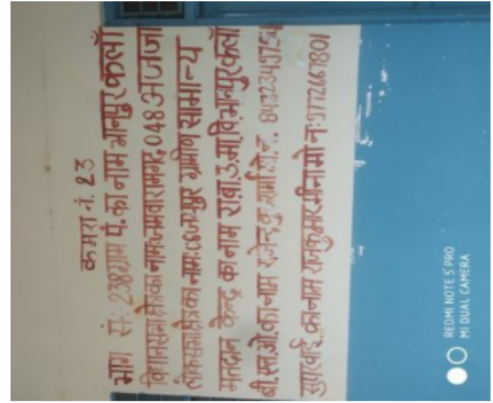 कमरा नं. 23
भाग सं: 238 ग्राम पं. का नाम भानपुर कलाँ
विधानसभा क्षेत्र का नाम: जमवारामगढ़ 048 अ.ज.जा
लोकसभा क्षेत्र का नाम: 06 जयपुर ग्रामीण सामान्य
मतदान केन्द्र का नाम रा.बा.उ.मा.वि. भानपुर कलाँ
बी.एल.ओ. का नाम राजेन्द्र कु. शर्मा मो. नं.
सुपरवाई. का नाम राजकुमार मीना मो नं: 9772667801
REDMI NOTE 5 PRO
MI DUAL CAMERA